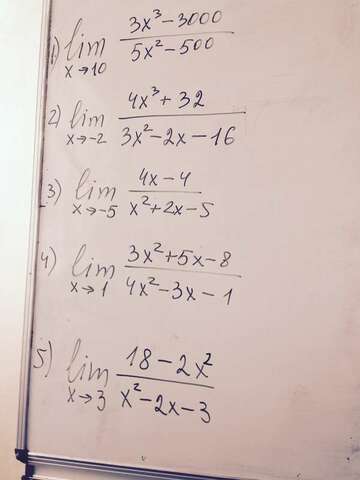 1) lim x→10 (3x³ − 3000)/(5x² − 500)
2) lim x→-2 (4x³ + 32)/(3x² − 2x − 16)
3) lim x→-5 (4x − 4)/(x² + 2x − 5)
4) lim x→1 (3x² + 5x − 8)/(4x² − 3x − 1)
5) lim x→3 (18 − 2x²)/(x² − 2x − 3)